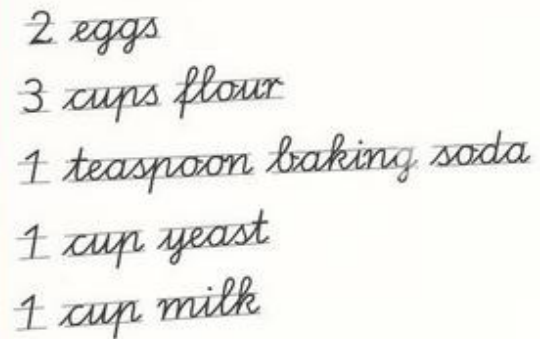 2 eggs
3 cups flour
1 teaspoon baking soda
1 cup yeast
1 cup milk